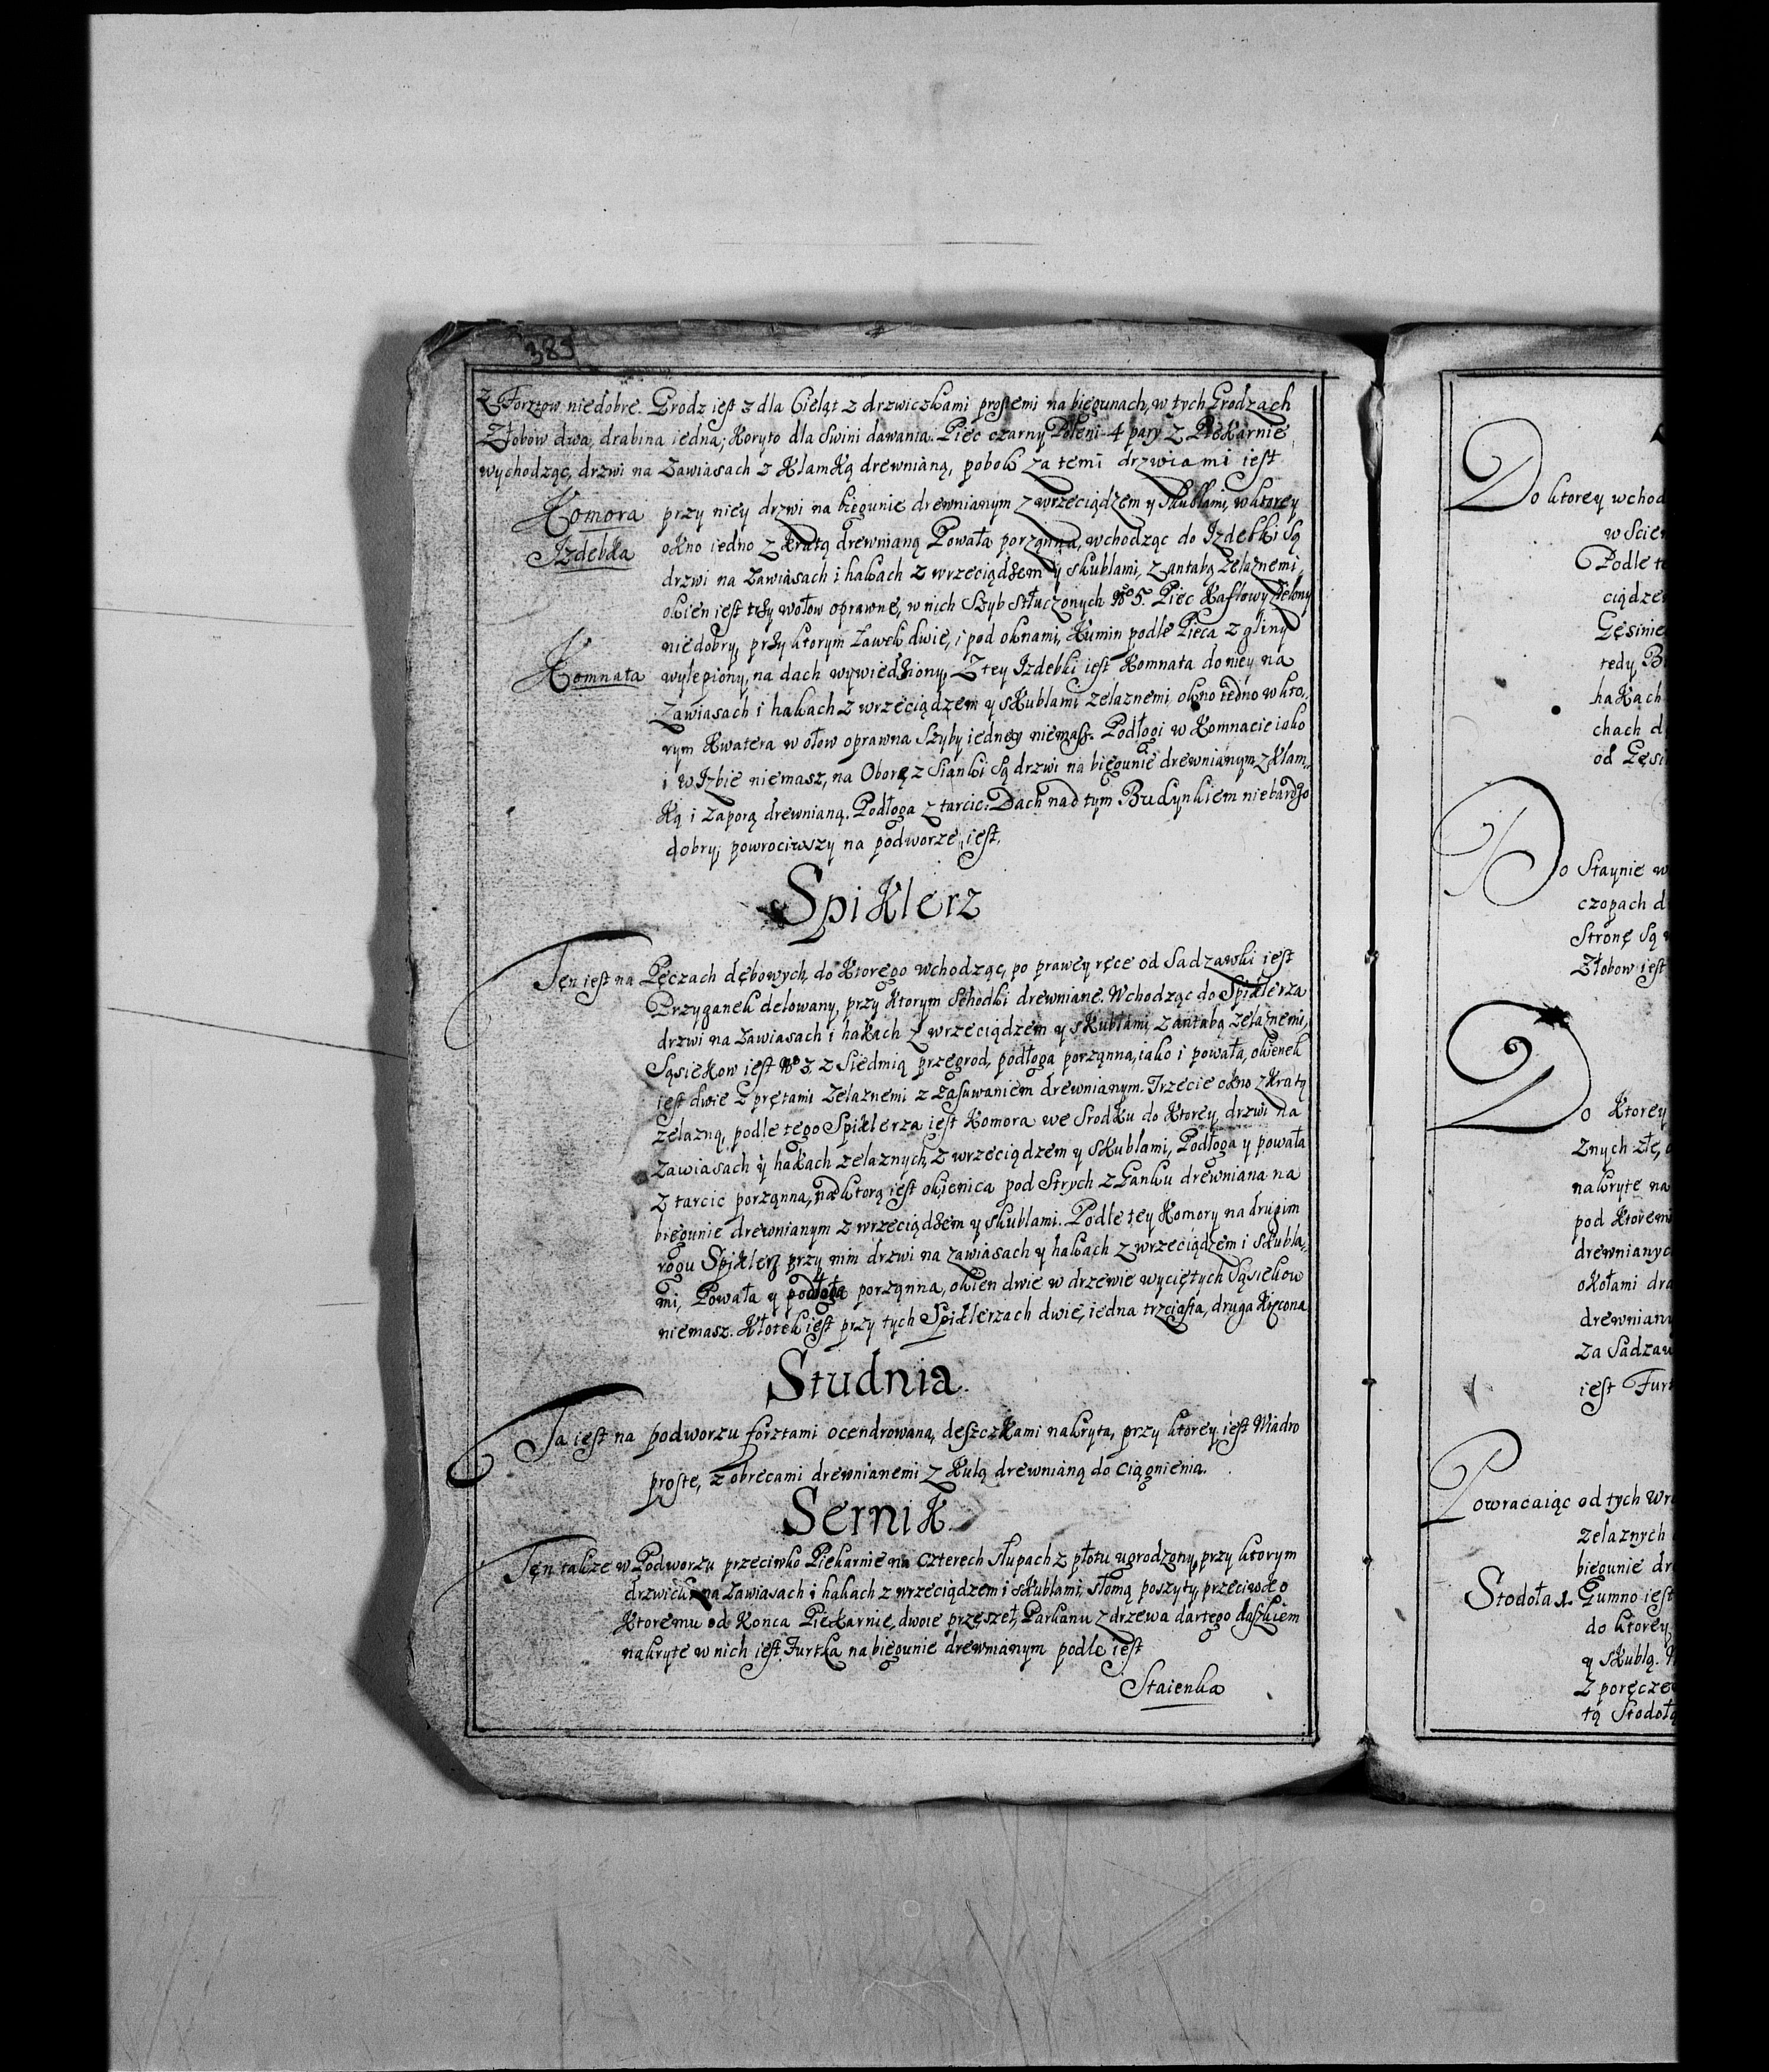 385
z Forztow niedobre. Grodz iest 3 dla Cieląt z drzwiczkami prostemi na biegunach, w tych Grodzach
Złobow dwa, drabina iedna; Koryto dla Swini dawania. Piec czarny 4 pary z Piekarnie
wychodząc, drzwi na Zawiasach z Klamką drewnianą, pobok za temi drzwiami iest
Komora przy niey drzwi na biegunie drewnianym z wrzeciądzem y Skublami, w ktorey
Izdebka okno iedno z Kratą drewnianą Powała porząnna, wchodząc do Izdebki Są
drzwi na Zawiasach i hakach z wrzeciądzem y skublami, z antabą Zelaznemi,
okien iest trzy wołow oprawne, w nich Szyb Stłuczonych No 5. Piec Kaflowy Zielony
niedobry, przy ktorym Ławek dwie, i pod oknami, Kumin podle Pieca z gliny
Komnata wylepiony, na dach wywiedziony, Z tey Izdebki iest Komnata do niey na
Zawiasach i hakach z wrzeciądzem y skublami zelaznemi, okno iedno w kto,
rym Kwatera w ołow oprawna Szyby iedney niemasz. Podłogi w Komnacie iako
i w Izbie niemasz, na Oborę z Sianki Są drzwi na biegunie drewnianym z Klam,
Ką i Zaporą drewnianą. Podłoga z tarcic. Dach nad tym Budynkiem niebardzo
dobry; powrociwszy na podworze iest,
Spiklerz
Ten iest na Pęczach dębowych, do Ktorego wchodząc, po prawey ręce od Sadzawki iest
Przyganek delowany, przy Ktorym Schodki drewniane. Wchodząc do Spiklerza
drzwi na Zawiasach i hakach z wrzeciądzem y skublami z antabą zelaznemi,
Sąsiekow iest No 3. z Siedmią przegrod, podłoga porząnna, iako i powała, okienek
iest dwie z prętami Zelaznemi z Zasuwaniem drewnianym. Trzecie okno z Kratą
zelazną, podle tego Spiklerza iest Komora we Srodku do Ktorey drzwi na
zawiasach y hakach zelaznych, z wrzeciądzem y Skublami, Podłoga y powała
z tarcic porząnna, nad ktorą iest okienica pod Strych z Ganku drewniana na
biegunie drewnianym z wrzeciądzem y skublami. Podle tey Komory na drugim
rogu Spiklerz przy nim drzwi na zawiasach y hakach z wrzeciądzem i skubla,
mi, Powała y podłoga porząnna, okien dwie w drzewie wyciętych Sąsiekow
niemasz. Kłotek iest przy tych Spiklerzach dwie, iedna trzciasta, druga Kręcona
Studnia
Ta iest na podworzu forztami ocendrowana, deszczkami nakryta, przy ktorey iest Wiadro
proste, z obrecami drewnianemi z Kulą drewnianą do ciągnienia.
Sernik
Ten takze w Podworzu przeciwko Piekarnie na czterech słupach z płotu ugrodzony, przy ktorym
drzwiczki na Zawiasach i hakach z wrzeciądzem i skublami, słomą poszyty, przeciwko
Ktoremu od Konca Piekarnie, dwoie przęszeł, Parkanu z drzewa dartego daszkiem
nakryte w nich iest Furtka na biegunie drewnianym podle iest
Staienka
Do ktorey wchod
w Scien
Podle te
ciądze
Gęsinie
tedy, B
hakach
chach d
od Gęsi
Do Staynie w
czopach d
Stronę Są
Złobow iest
Do Ktorey
znych złe,
nakryte na
pod Ktoremi
drewnianyc
okołami dra
drewniany
za Sadzaw
iest Furt
Powracaiąc od tych Wro
zelaznych
biegunie dr
Stodoła 1. Gumno iest
do ktorey
y skublą.
z poręcze
tą Stodołą